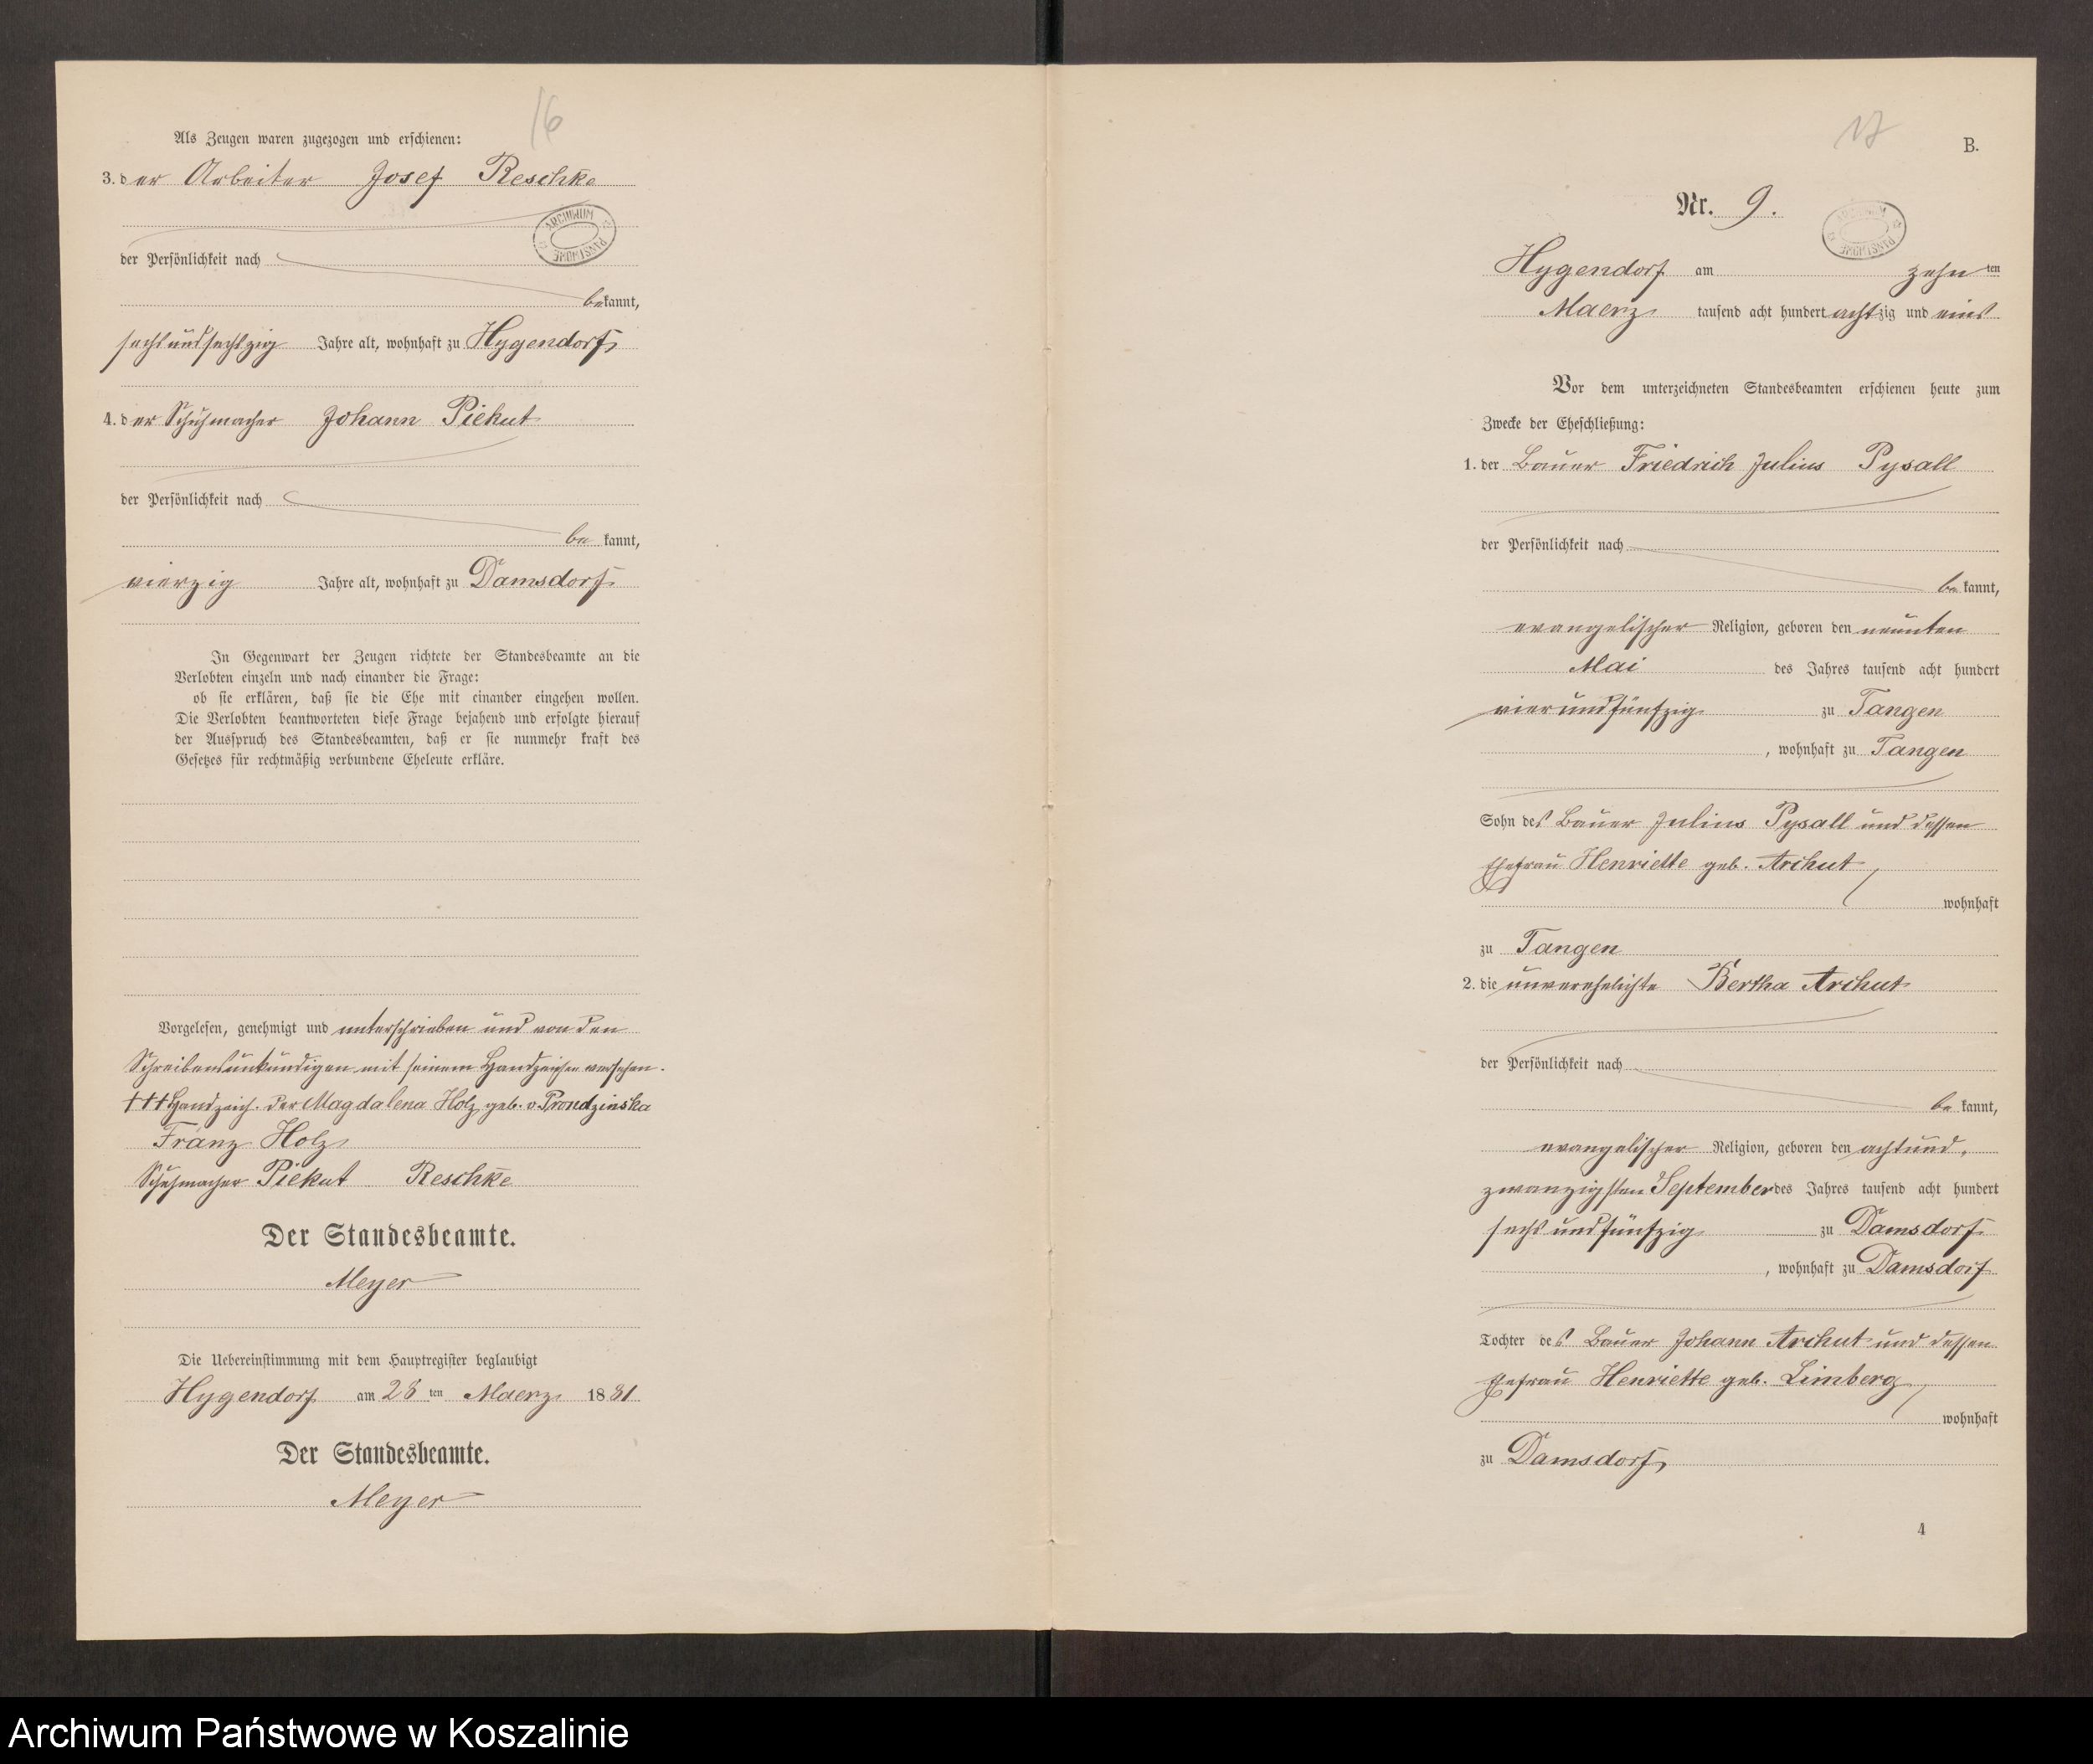 16
Als Zeugen waren zugezogen und erschienen:
3. der Arbeiter Josef Reschke
ARCHIWUM PAŃSTWOWE
der Persönlichkeit nach
bekannt,
sechsundsechzig Jahre alt, wohnhaft zu Hygendorf
4. der Schuhmacher Johann Piekut
der Persönlichkeit nach
be kannt,
vierzig Jahre alt, wohnhaft zu Damsdorf
In Gegenwart der Zeugen richtete der Standesbeamte an die
Verlobten einzeln und nach einander die Frage:
ob sie erklären, daß sie die Ehe mit einander eingehen wollen.
Die Verlobten beantworteten diese Frage bejahend und erfolgte hierauf
der Ausspruch des Standesbeamten, daß er sie nunmehr kraft des
Gesetzes für rechtmäßig verbundene Eheleute erkläre.
Vorgelesen, genehmigt und unterschrieben und von den
Schreibensunkundigen mit seinem Handzeichen versehen.
+++ Handzeich. der Magdalena Holz geb. v. Prondzinska
Franz Holz
Schuhmacher Piekut Reschke
Der Standesbeamte.
Meyer
Die Uebereinstimmung mit dem Hauptregister beglaubigt
Hygendorf am 28 ten Maerz 1881
Der Standesbeamte.
Meyer
17
B.
Nr. 9.
ARCHIWUM PAŃSTWOWE
Hygendorf am zehn ten
Maerz tausend acht hundert achtzig und eins
Vor dem unterzeichneten Standesbeamten erschienen heute zum
Zwecke der Eheschließung:
1. der Bauer Friedrich Julius Pysall
der Persönlichkeit nach
be kannt,
evangelischer Religion, geboren den neunten
Mai des Jahres tausend acht hundert
vierundfünfzig zu Tangen
, wohnhaft zu Tangen
Sohn des Bauer Julius Pysall und dessen
Ehefrau Henriette geb. Archut
wohnhaft
zu Tangen
2. die unverehelichte Bertha Archut
der Persönlichkeit nach
be kannt,
evangelischer Religion, geboren den achtund,
zwanzigsten September des Jahres tausend acht hundert
sechsundfünfzig zu Damsdorf
, wohnhaft zu Damsdorf
Tochter des Bauer Johann Archut und dessen
Ehefrau Henriette geb. Limberg
wohnhaft
zu Damsdorf
4
Archiwum Państwowe w Koszalinie